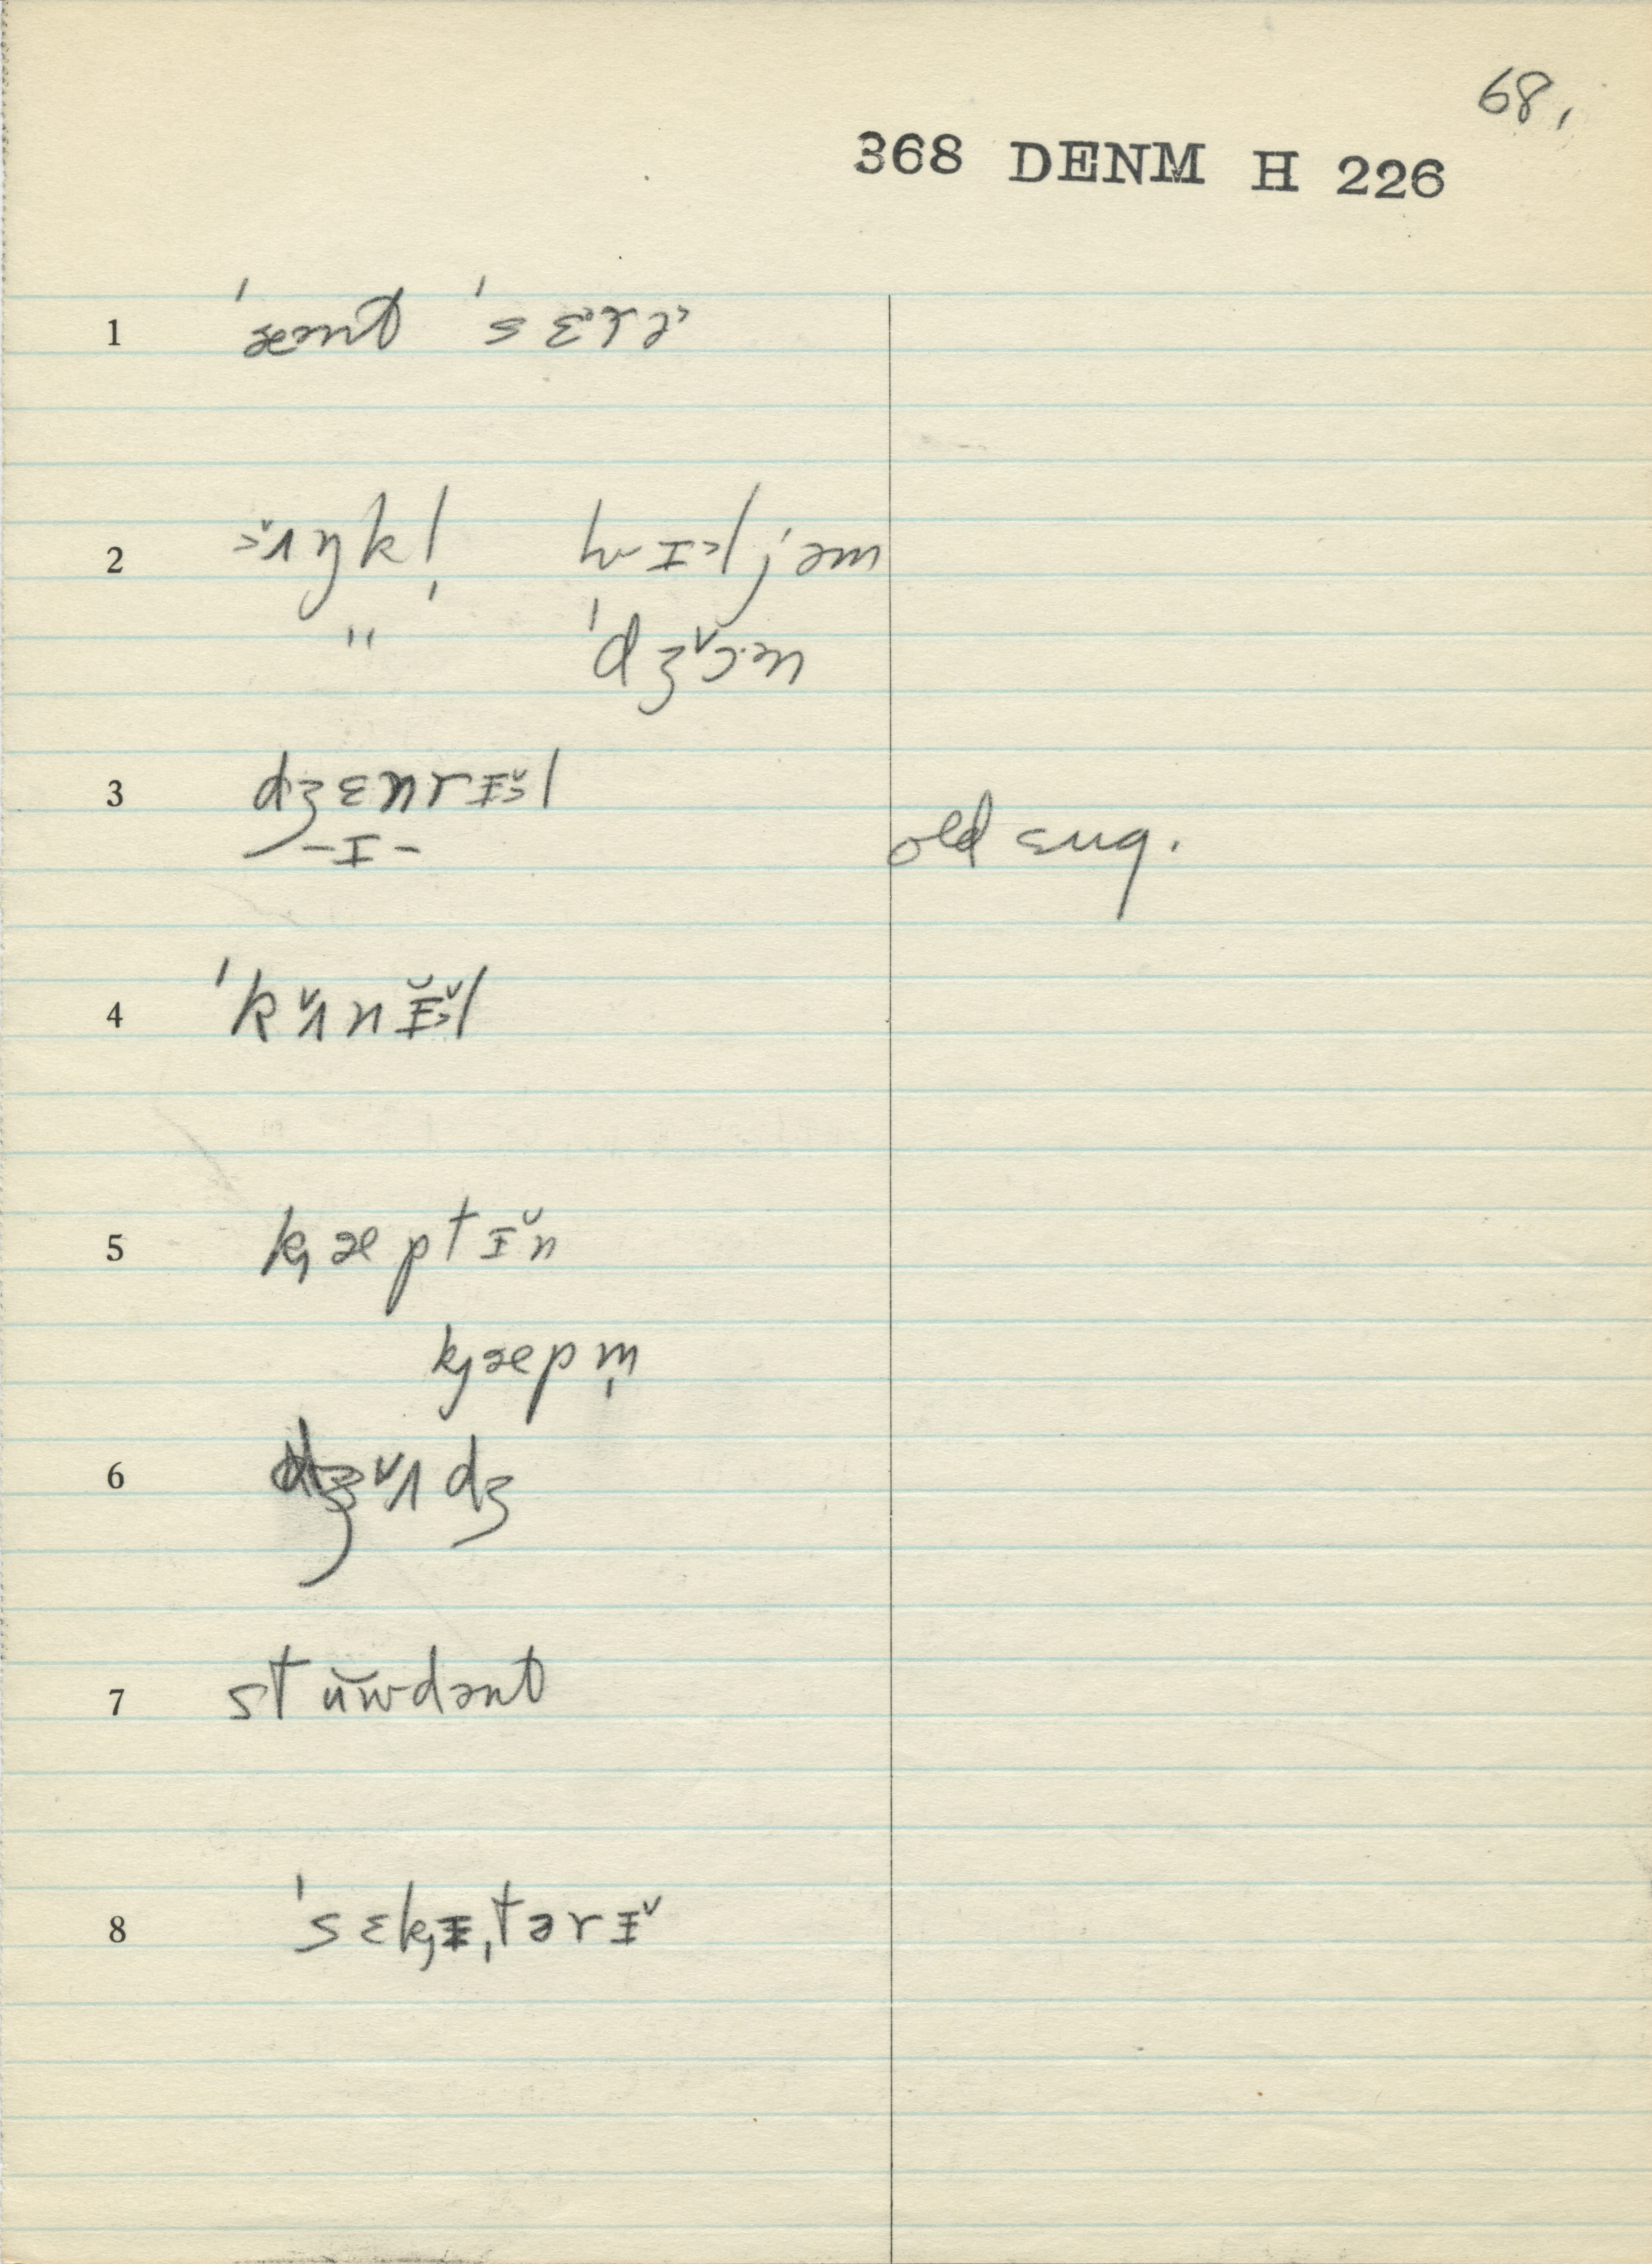 68.
368 DENM H 226
1 ˈæənt ˈsɛᵊrə˃
2 ə˅ʌŋkl̩ wɪ˃ljəm
" ˈdʒ˅ɔ·ən
3 dʒɛnrɪ̆˃l
-ɪ- old aug.
4 ˈk˅ʌnɪ̆˃l
5 k̡æptɪ̆n
k̡æpm̩
6 dʒ˅ʌdʒ
7 stŭwdənt
8 ˈsɛk̡ɪˌtərɪ˅